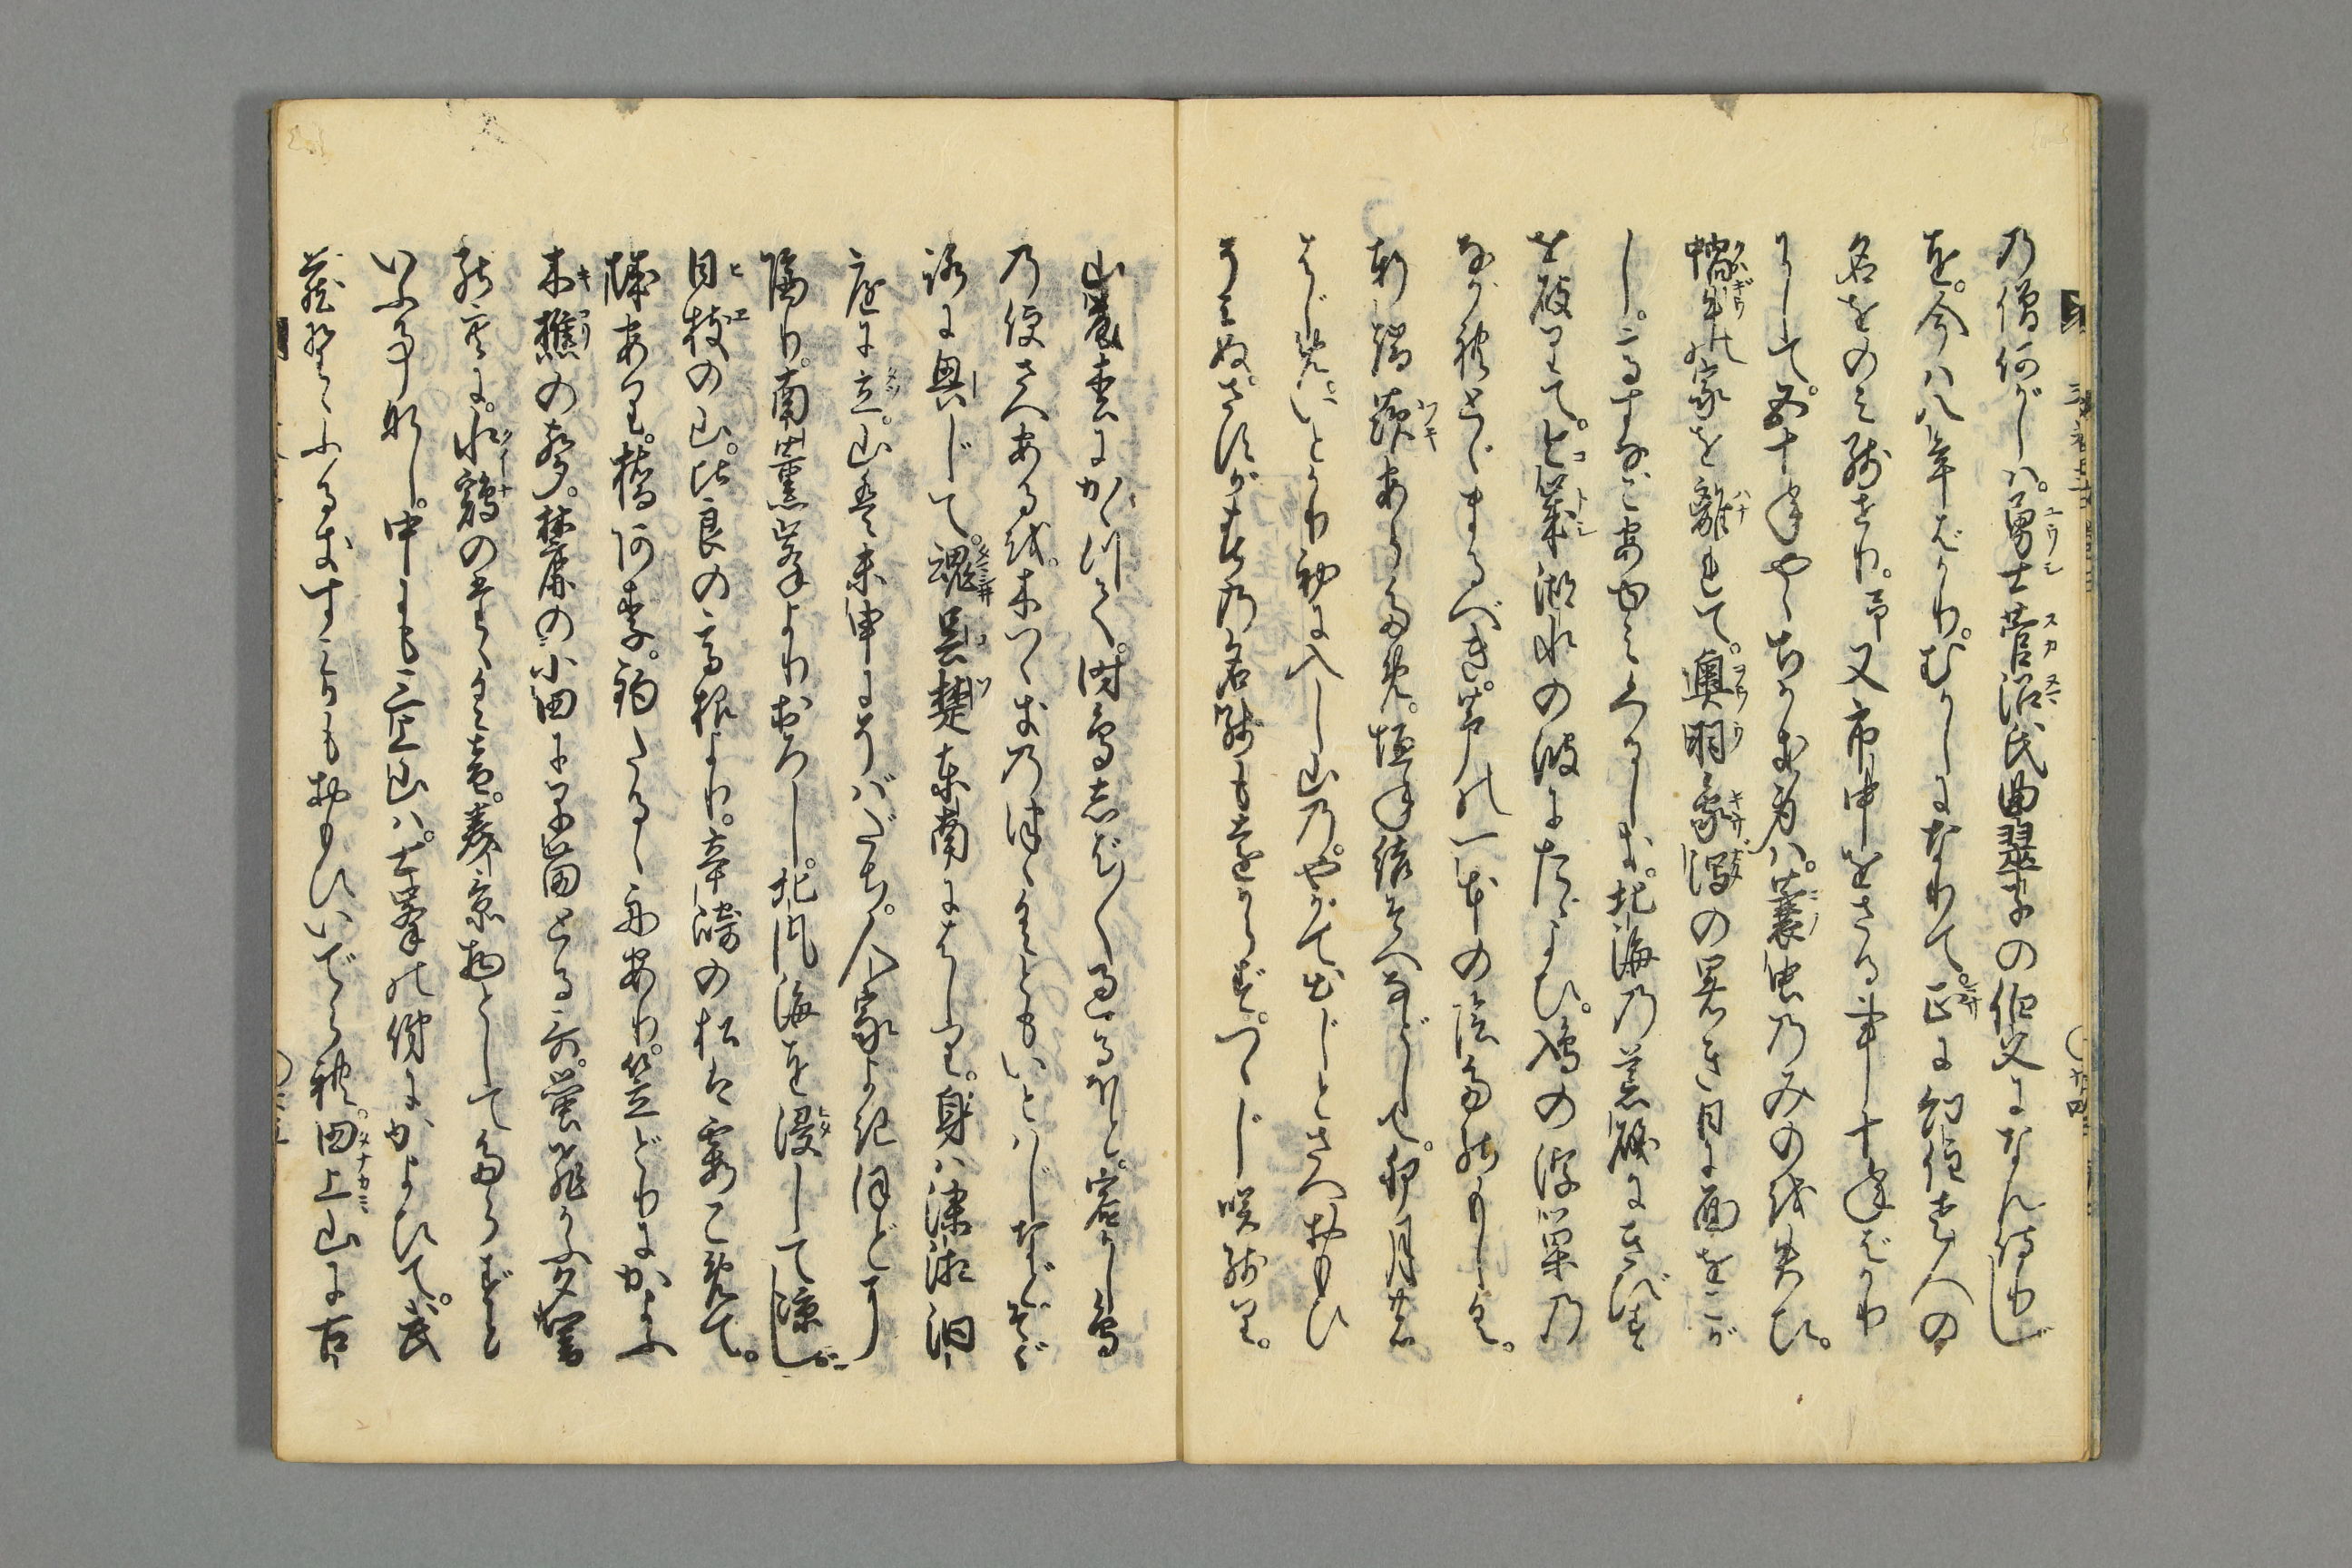 乃僧何がしハ。勇士菅沼氏曲翠子の伯父になん侍りし
を。今ハ八年ばかりむかしになりて。正に幻住老人の
名をのミ残せり。予又市中をさる事十年ばかり
にして。五十年やゝちかき身ハ。蓑虫乃みのを失ひ。
蝸牛家を離れて。奥羽象潟の暑き日に面をこが
し。高すなごあゆミくるしき。北海乃荒磯にきびす
を破りて。今歳湖水の波にたゞよひ。鳰の浮巣乃
ながれとゞまるべき。芦の一本の陰たのもしく。
軒端茨あらため。垣ね結そへなどして。卯月の
はじめ。いとかり初に入し山乃。やがて出じとさへおもひ
そみぬ。さすが春乃名残も遠からず。つゝじ咲残り。
山藤松にかゝりて。時鳥しば〱過るほど。宿かし鳥
乃便さへあるを。木つゝき乃つゝくともいとはじなど。そゞ
ろに興じて。魂呉楚東南にはしり。身ハ瀟湘洞
庭に立。山は未申にそバだち。人家よきほどに
隔り。南薫峯よりおろし。北風海を浸して涼し。
日枝の山。比良の高根より。辛崎の松は霞こめて。
城あり。橋有。釣たるゝ舟あり。笠どりにかよふ
木樵の聲。麓の小田に早苗とる哥。螢飛かふ夕闇
の空に。水鶏の扣音。美景物としてたらずと
いふ事なし。中にも三上山ハ。士峯の俤にかよひて。武
蔵野ゝふるきすミかもおもひいでられ。田上山に古